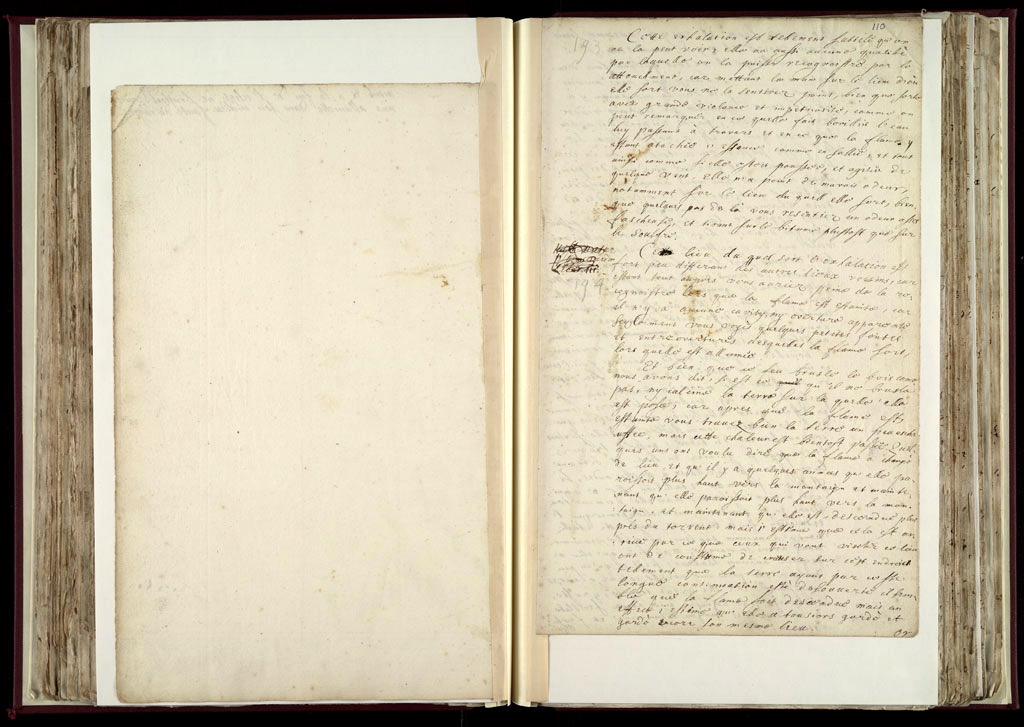 110
Cette exhalation est tellement subtile qu'on
ne la peut voir, elle na aussi aucune qualité
par laquelle on la puisse recognoistre par la
attouchement, car mettant la main sur le lieu d'où
elle sort vous ne la sentirez point, bien que sorte
avec grande violance et impetuosité, comme on
peut remarquer en ce quelle fait bouillir l'eau
luy passant à travers et en ce que la flame y
estant atachée
ainsi comme si elle estoit poussée, et agitée de
quelque vent, elle n'a point de mauvais odeur,
notamment sur le lieu du quel elle sort, bien
que quelques pas de là vous resentiez un odeur asses
fascheuse, et tient sur le bitume plustost que sur
le soufre.
194
Ce lieu du quel sort l'exhalation est
fort peu differant des autres lieux voisins, car
vous auriez peine de le re-
cognoistre lors que la flame est esteinte, car
il n'y a aucune cavité, ny ouverture apparente
seulement vous voyés quelques petites fentes
et entreouvertures desquelles la flame sort,
lors quelle est allumée
Et bien que ce feu brusle le bois comme
nous avons dit, si est ce qu'il ne brusle
pas, ny calcine la terre sur la quelle elle
est posée, car apres que la flame est
estainte vous trouvez bien la terre un peu escha-
uffée, mais cette chaleur est bientost passée. Quel-
ques uns ont voulu dire que la flame a changé
de lieu, et qu'il y a quelques années qu'elle pa-
roissoit plus haut vers la montaign et mainte-
nant qu'elle paroissoit plus haut vers la mon-
taign, et maintenant qu'elle est descendue plus
pres du torrent, mais j'estime que cela est ar-
rivé par ce que ceux qui vont visiter ce lieu
ont de coustume de creuser sur cest endroict
tellement que la terre ayant par ceste
longue continuation esté descouverte il sem-
ble que la flame soit descendue mais en
effect j'estime qu'elle a tousiours gardé et
garde encore son mesme lieu.
Or